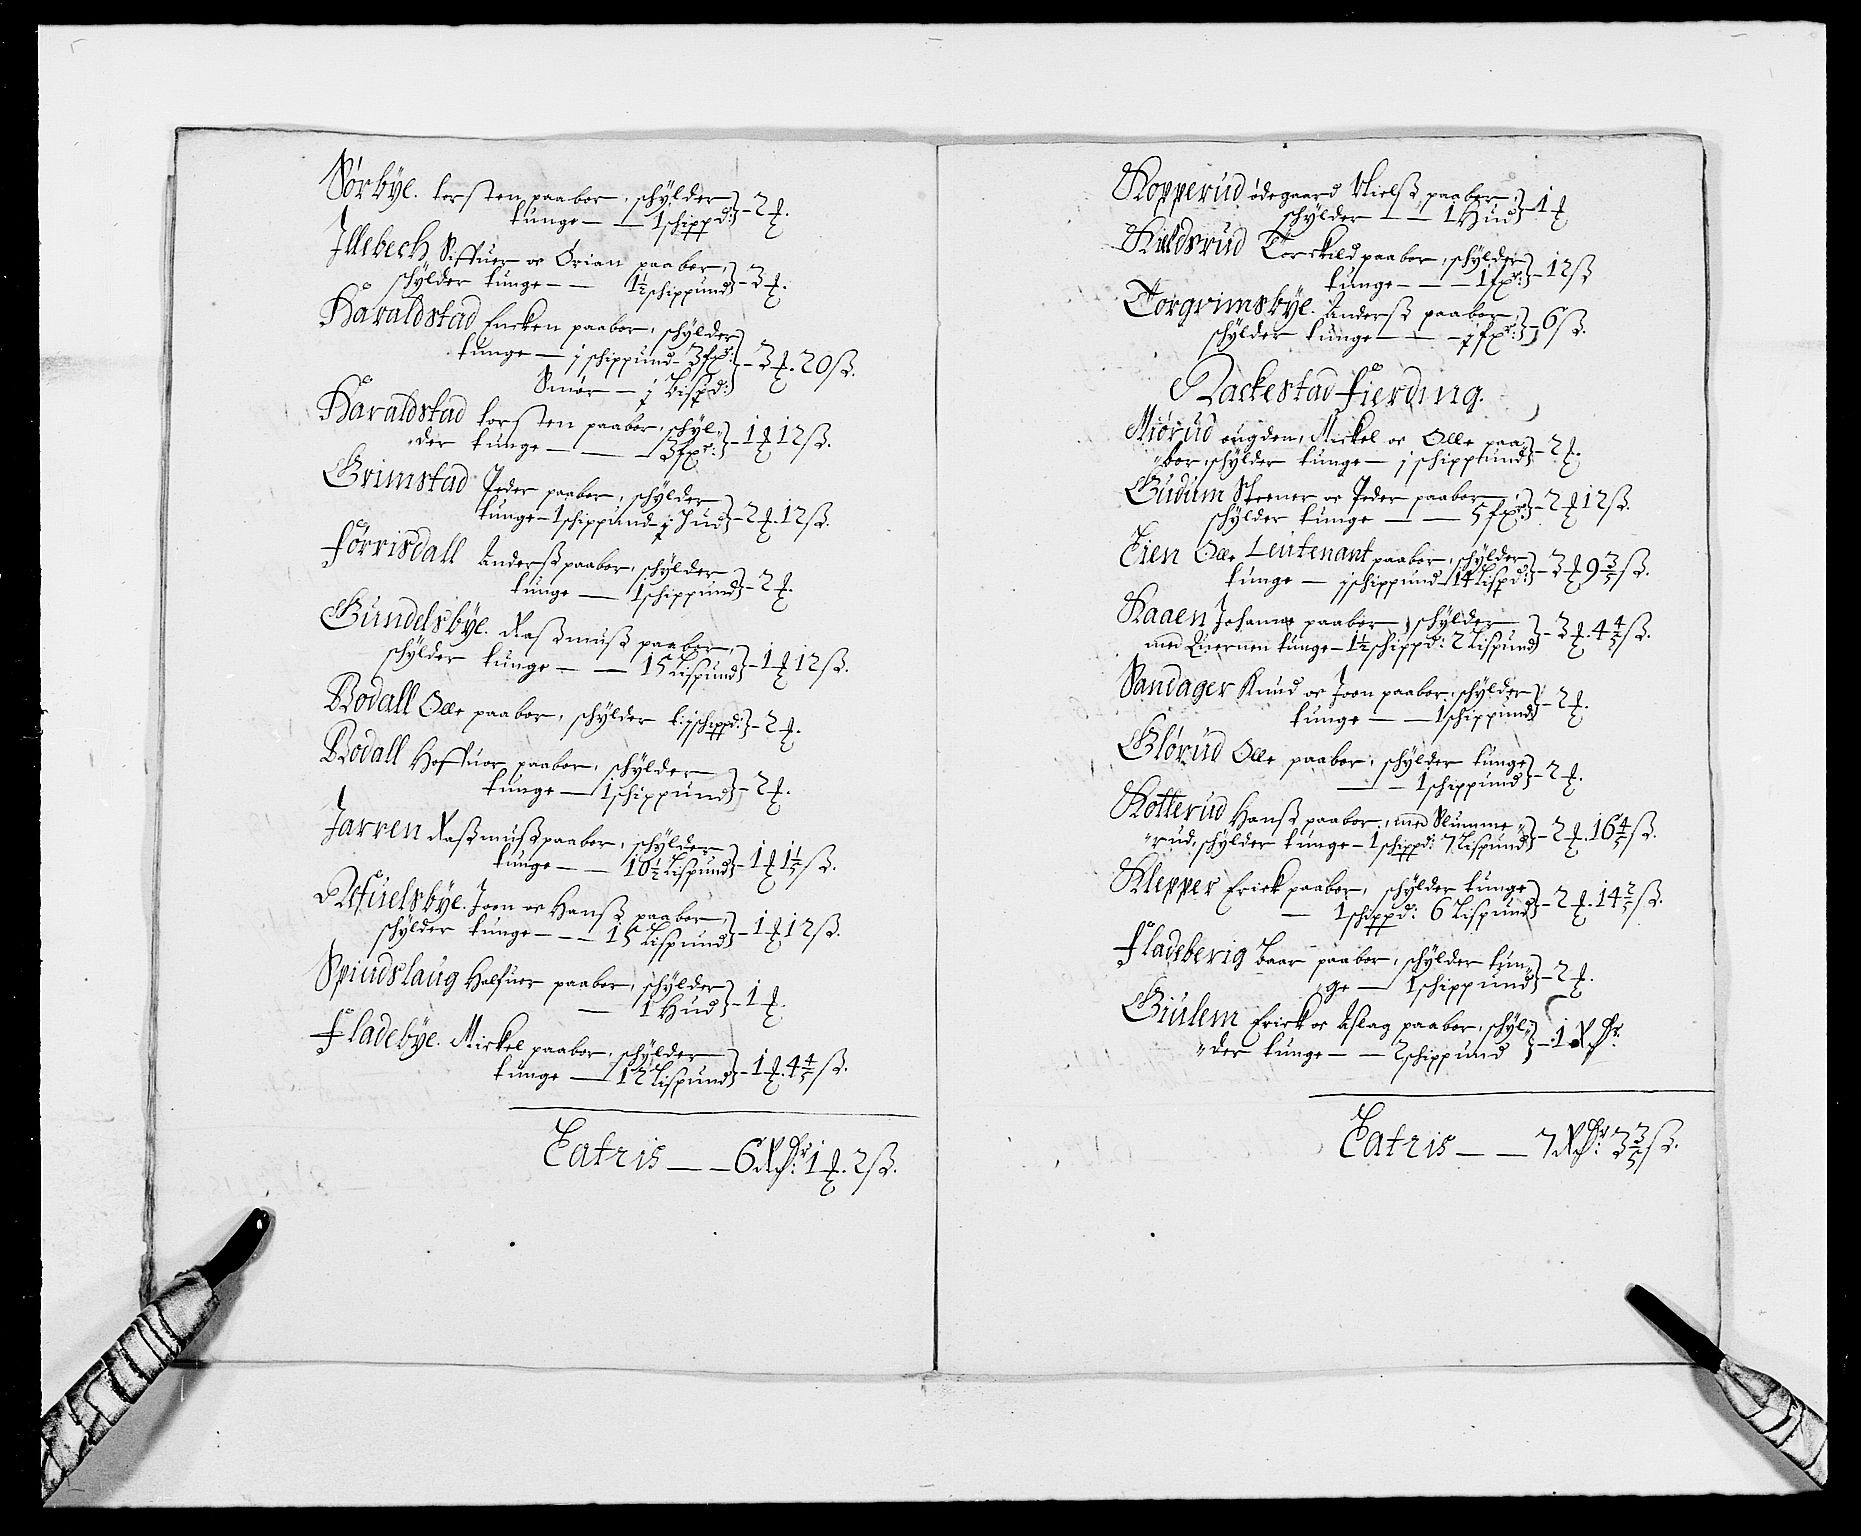 Sørbÿe. torsten paaboer, schÿlder
tunge — 1 schippd: — 2 ƒ.
Illebech, Siffuer oc Örian paaboer,
schÿlder tunge — — 1½ schippund — 3 ƒ.
Haraldstad Encken paaboer, schÿlder
tunge — j schippund — 3 fxr: — 3 ƒ. 20 ß.
Smør — j bispd:
Haraldstad torsten paaboer, schÿl¬
der tunge — — 3 fxr: — 1 ƒ 12 ß.
Grimstad Peder paaboer, schÿlder
tunge — 1 schippund — j Hud — 2 ƒ. 12 ß.
Førrisdall Anderß paaboer, schÿlder
tunge — 1 schippund — 2 ƒ.
Gundelsbÿe. Raßmuß paaboer,
schÿlder tunge — — 15 Lispund — 1 ƒ 12 ß.
Bodall Olle paaboer, schÿlder t: j schippd: — 2 ƒ.
Bodall Hoffuor paaboer, schÿlder
tunge — 1 schippund — 2 ƒ.
Jarren Raßmuß paaboer, schÿlder
tunge — — 10½ Lispund — 1 ƒ 1 1/5 ß.
Refuelsbÿe. Joen oc Hanß paaboer,
schÿlder tunge — — 15 Lispund — 1 ƒ 12 ß.
Spiudslaug Halfuer paaboer, schÿlder
— 1 Hud — 1 ƒ.
Fladebÿe. Mickel paaboer, schÿlder
tunge — 12 Lispund — 1 ƒ. 4 4/5 ß.
Latris — — 6 Rdr: 1 ƒ. 2 ß.
Kopperud ødegaard Nielß paaboer,
schÿlder — — 1 Hud — 1 ƒ
Torckild paaboer, schÿlder
tunge — — 1 fxr: — 12 ß
Torgrimsbÿe. Anderß paaboer,
schÿlder tunge — — ½ fxr: — 6 ß.
Rackestad fierding.
Miørud eugden, Mickel oc Olle paa¬
boer, schÿlder tunge — j schippund — 2 ƒ.
Gudum Steener oc Peder paaboer,
schÿlder tunge — — 5 fxr: — 2 ƒ 12 ß.
Lien Olle Leutenant paaboer, schÿlder
tunge — j schippund — 14 Lispd: — 3 ƒ 9 3/5 ß.
Haaen Johanne paaboer, schÿlder
med Quernen tunge — 1½ schippd: 2 Lispund — 3 ƒ. 4 4/5 ß.
Sandager Knud oc Joen paaboer, schÿlder
tunge — — 1 schippund — 2 ƒ.
Glørud Olle paaboer, schÿlder tunge
— — 1 schippund — 2 ƒ.
Kotterud Hanß paaboer, med Slumme¬
rud, schÿlder tunge — 1 schippd: 7 Lispund — 2 ƒ. 16 4/5 ß.
Klepper Erick paaboer, schÿlder tunge
— 1 schippd: 6 Lispund — 2 ƒ. 14 2/5 ß.
Fladeberig Baar paaboer, schÿlder tun¬
ge — 1 schippund — 2 ƒ.
Giulem Erick oc Aslag paaboer, schÿl¬
der tunge — — 2 schippund — 1 Rdr.
Latris — — 7 Rdr: 3 3/5 ß.